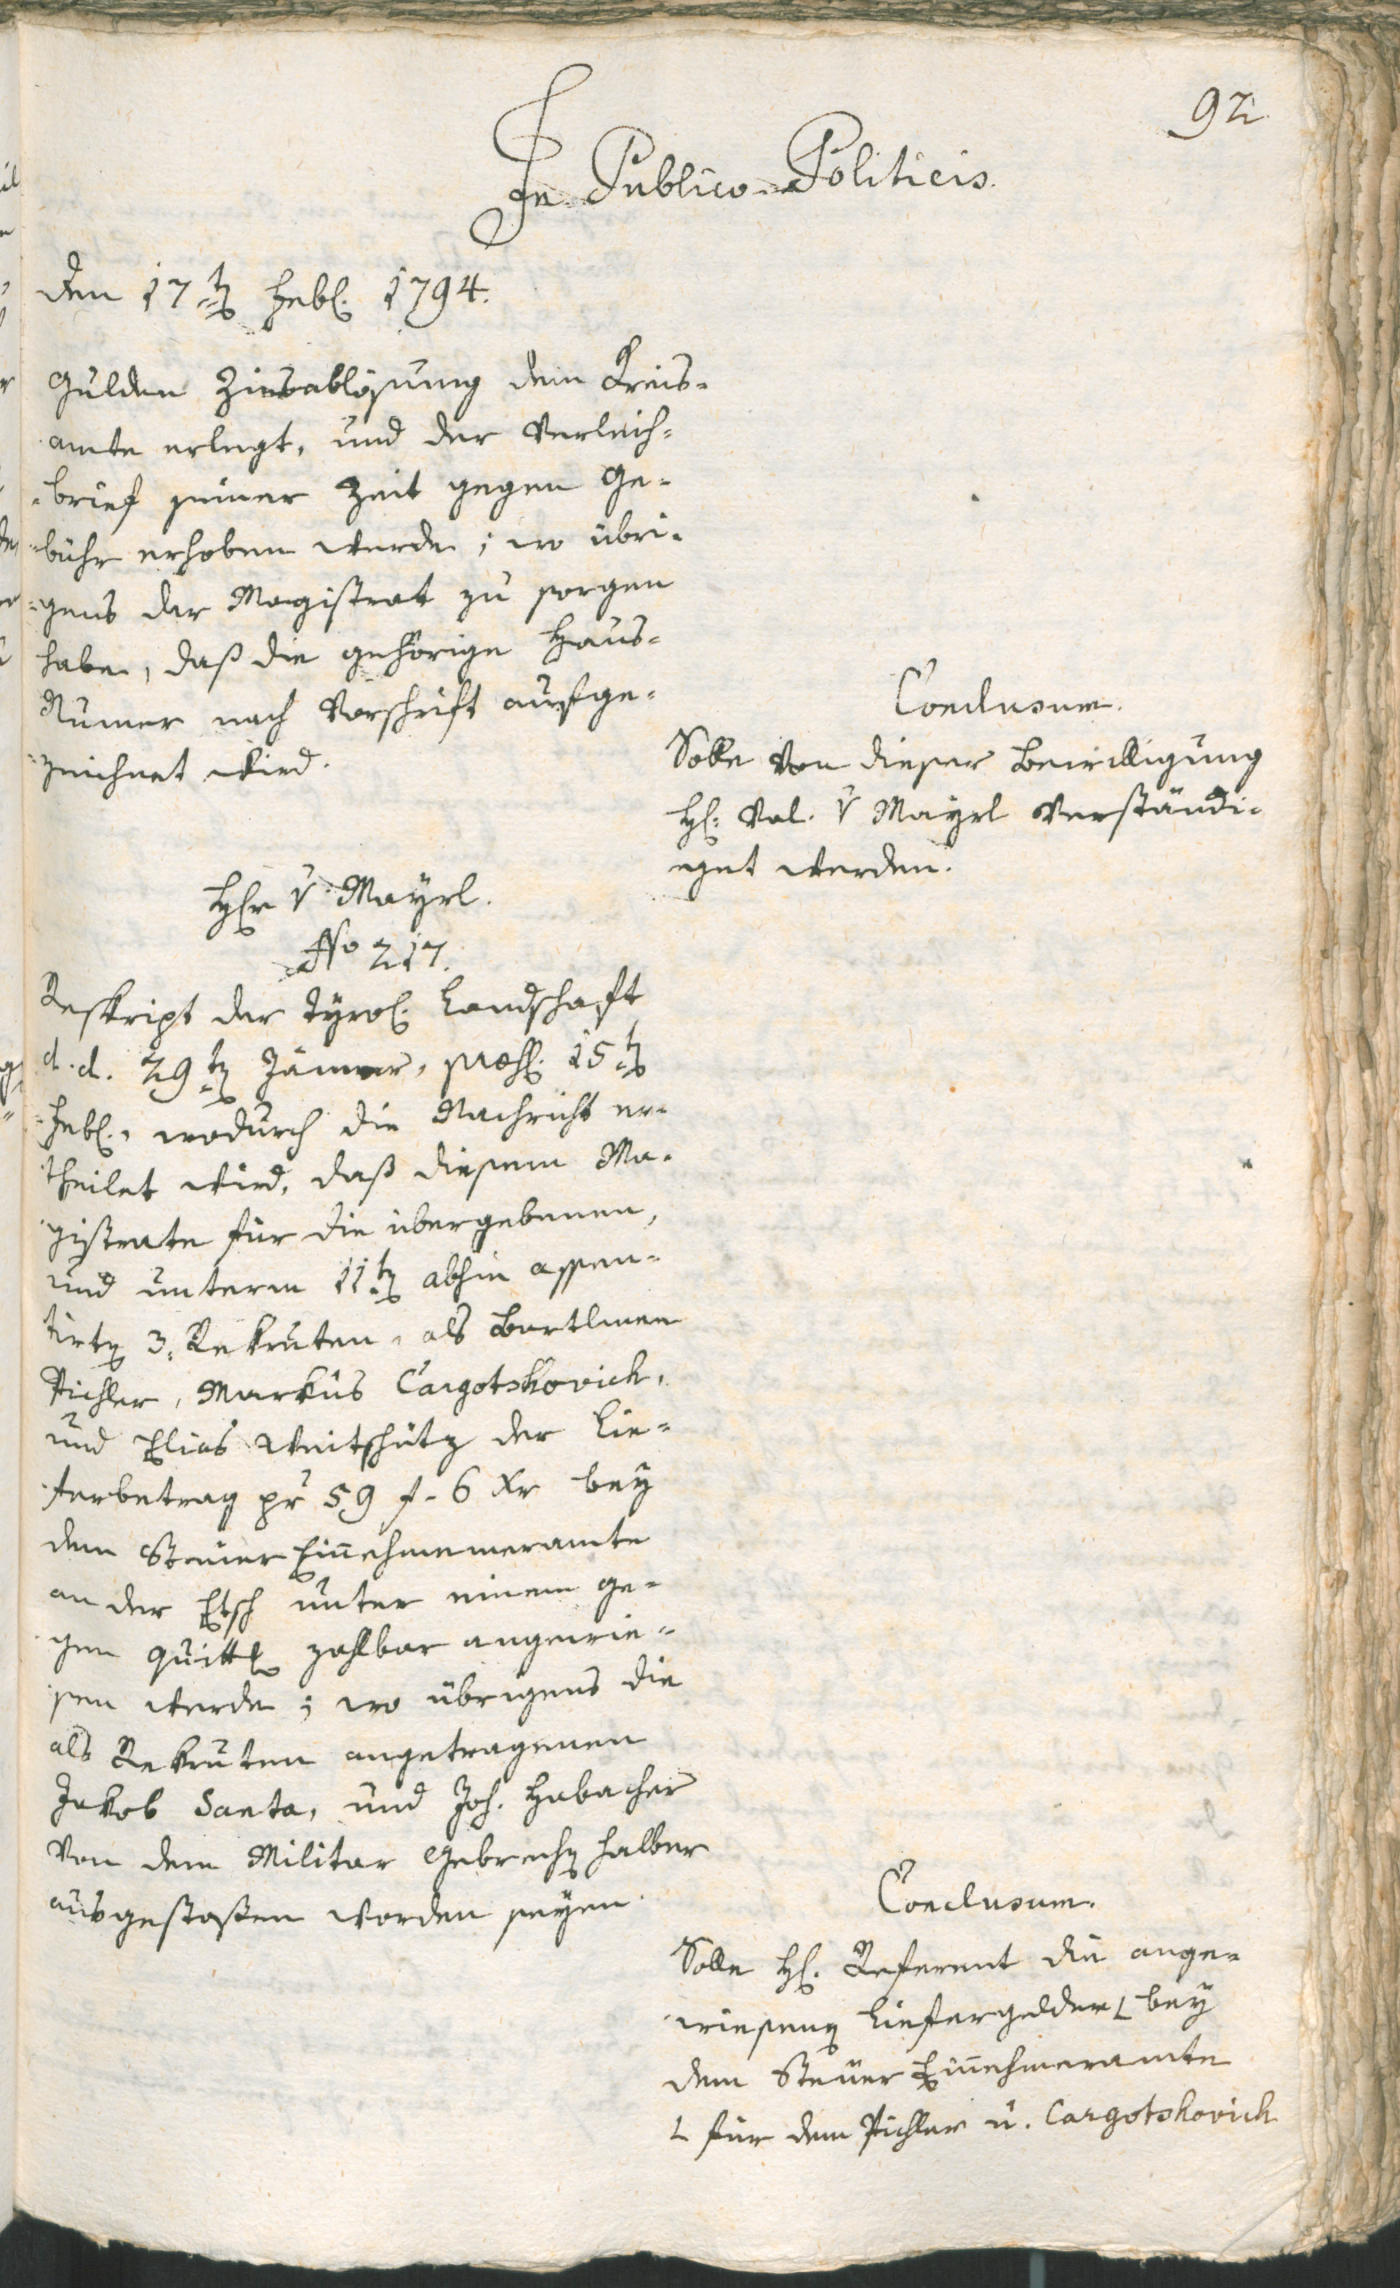 92
In Publico-Politicis.
den 17ten Febr. 1794.
Gulden Zinsablösung dem Kreis-
amte erlegt, und der Verleich-
brief seiner Zeit gegen Ge-
bühr erhoben werde; wo übri-
gens der Magistrat zu sorgen
habe, daß die gehörige Haus-
Numer nach Vorschrift aufge-
zeichnet wird.
Conclusum.
Solle von dieser Bewilligung
H: Val. v Mayrl verständi-
get werden.
Herr v Mayrl.
No 217.
Reskript der Tyrol. Landschaft
d. d. 29ten Jänner, praes. 15ten
Febr., wodurch die Nachricht er-
theilet wird, daß diesem Ma-
gistrate für die übergebenen,
und unterm 11ten abhin assen-
tirten 3. Rekruten, als Bartlmee
Pichler, Markus Cargotskovich,
und Elias Weitschütz der Lie-
ferbetrag pr 59 f. 6 Xr bey
dem Steuer Einnehmemeramte
an der Etsch unter einem ge-
gen Quittung zahlbar angewie-
sen werde; wo übrigens die
als Rekruten angetragenen
Jakob Santa, und Joh. Habacher
von dem Militar Gebrechen halber
ausgestossen worden seyen.
Conclusum.
Solle H. Referent die ange-
wiesenen Liefergelder L bey
dem Steuer Einnehmeramte
L für dem Pichler u. Cargotskovich